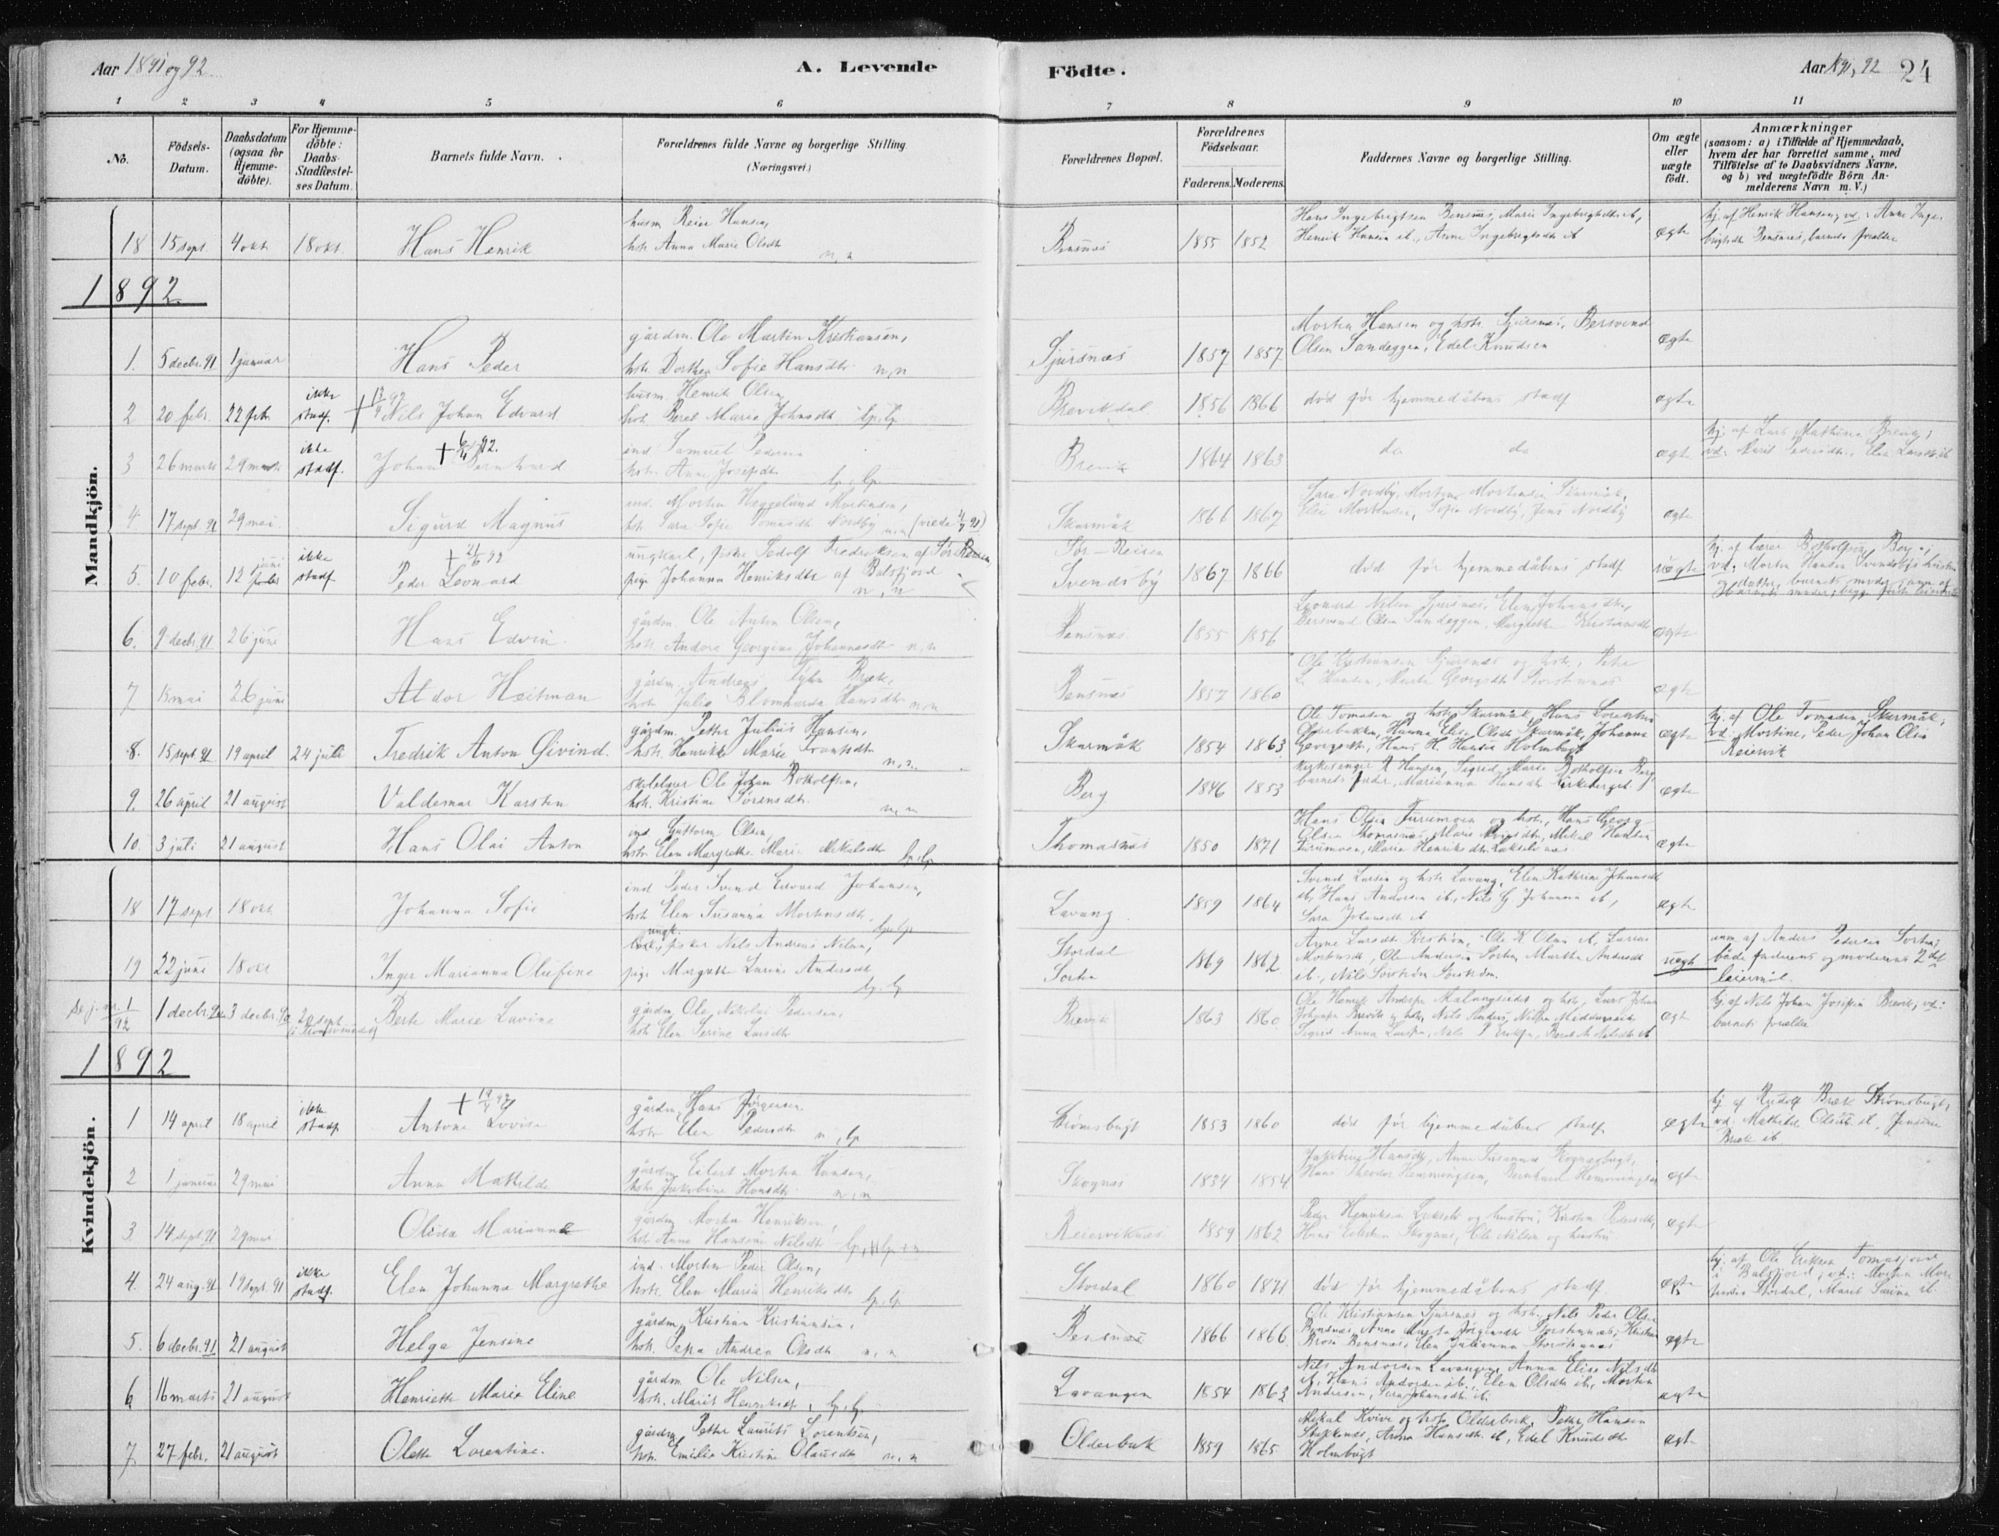 Aar 1891 og 92
A. Levende
Födte.
Aar 1891, 92
24
1 2 3 4 5 6 7 8 9 10 11
No.
Födsels-
Datum.
Daabsdatum
(ogsaa for
Hjemme-
döbte).
For Hjemme-
döbte:
Daabs-
Stadfæstel-
ses Datum.
Barnets fulde Navn.
Forældrenes fulde Navne og borgerlige Stilling
(Næringsvei.)
Forældrenes Bopæl.
Forældrenes
Födselsaar.
Faderens. Moderens.
Faddernes Navne og borgerlige Stilling.
Om ægte
eller
uægte
födt.
Anmærkninger
(saasom: a) i Tilfælde af Hjemmedaab,
hvem der har forrettet samme, med
Tilföielse af to Daabsvidners Navne,
og b) ved uægtefödte Börn An-
melderens Navn m. V.)
Mandkjön.
18 15 sept 4 okt 18 okt. Hans Henrik
husm Reier Hansen,
hstr Anna Marie Olsdtr n, n
Bensnæs 1855 1852
Hans Ingebrigtsen Bensnæs, Marie Ingebrigtsdtr ib,
Henrik Hansen ib., Anne Ingebrigtsdtr ib
ægte
hj. af Henrik Hansen, vd: Anne Inge-
brigtsdtr Bensnæs, barnets forældre
1892.
1. 5 decbr. 91 1 januar Hans Peder
gårdm. Ole Martin Kristiansen,
hstr. Dorthea Sofie Hansdtr. n, n
Sjursnæs 1857 1857
Morten Hansen og hstr Sjursnæs, Bersvend
Olsen Sandeggen, Edel Knudsen
ægte
2 20 febr. 22 febr. ikke
stadf. + 13/9 92 Nils Johan Edvard
husm. Henrik Olsen
hstr. Beret Maria Johnsdtr lp, lp
Brevikdal 1856 1866 død før hjemmedåbens stadf ægte
3 26 marts 29 marts ikke
stadf. Johan Bernhard + 6/4 92.
ind. Samuel Pedersen
hstr. Anne Josefsdtr. lp, lp
Brevik 1864 1863 do do ægte
hj. af Lars Mathisen Brevik;
vd: Marit Pedersdtr., Elen Larsdtr ib
4 17 sept. 91 29 mai. Sigurd Magnus
ind. Morten Heggelund Mortensen,
hstr. Sara Sofie Tomasdtr Nordby n, n
Skarmåk 1866 1867
Sara Nordby, Morten Mortensen Skarmåk,
Elise Mortensen, Sofie Nordby, Jens Nordby
ægte
5. 10 febr. 12 febr ikke
stadf. + 21/6 92 Peder Leonard
ungkarl, fisker Sedolf Fredriksen af Sør Reisen,
pige Johanna Henriksdtr af Balsfjord n, n
Sør-Reisen
Svendsby 1867 1866 død før hjemmedåbens stadf uægte
hj. af lærer Botholfsen Berg,
vd: Morten Hansen Svendsby
6. 9 decbr. 91 26 juni Hans Edvin
gårdm. Ole Anton Olsen,
hstr. Andrea Georgine Johannesdtr n, n
Bensnæs 1855 1856
Leonard Nilsen Sjursnæs, Elen Johansdtr,
Bersvend Olsen Sandeggen, Margrethe Kristiansdtr
ægte
7 13 mai 26 juni Aldor Heitman
gårdm. Andreas Bræk,
hstr. Julia Hansdtr n, n
Bensnæs 1857 1860
Ole Kristiansen Sjursnæs og hstr., Peter
Hansen, Marta Georgsdtr Storstennæs
ægte
8. 15 sept. 91 19 april 24 juli Fredrik Anton Eivind.
gårdm. Petter Julius Hansen,
hstr. Henrikke Marie Frantsdtr n, n.
Skarmåk 1854 1863
Ole Tomasen og hstr. Skarmåk, Hans Lorentsen
Olderbakken, Hanna Elise Olsdtr Skarmåk, Johanna
Georgsdtr, Hans H. Hansen Holmbugt
ægte
hj. af Ole Tomasen Skarmåk,
vd: Mortine, Peder Johan Olsen
Reiervik
9. 26 april 21 august Valdemar Karsten
skolelærer Ole Johan Botholfsen,
hstr. Kristine Sørensdtr. n, n
Berg 1846 1853
kirkesanger R Hansen, Sigrid Marie Botholfsen Berg,
barnets fader, Marianna Hansdtr Kirkeberget
ægte
10. 3 juli 21 august Hans Olai Anton
ind Guttorm Olsen,
hstr. Elen Margrethe Marie Mikalsdtr lp, lp
Thomasnæs 1850 1871
Hans Olsen Furumoen og hstr, Hans Georg
Olsen Thomasnæs, Mikal Hansen
Furumoen, Marie Henriksdtr Lakselvnæs
ægte
Kvindekjön.
18 17 sept 18 okt. Johanna Sofie
ind Peder Svend Edvard Johansen,
hstr. Elen Susanna Mortensdtr. lp, lp
Lavang 1859 1864
Svend Larsen og hstr Lavang, Elen Kathrine Johansdtr
ib, Hans Andersen ib, Nils G. Johansen ib,
Sara Johansdtr ib
ægte
19 22 juni 18 okt Inger Marianna Olufine
ungk. fisker Nils Andreas Nilsen,
pige Margrethe Larine Andersdtr lp, lp
Stordal
Sorten 1869 1862
Anne Larsdtr, Ole K Olsen ib, Larine
Mortensdtr, Ole Andersen Sorten, Martha Andersdtr
ib, Nils
uægt
anm af Anders Pedersen Sorten,
både faderens og moderens 2det
leiermål.
1/92 1 decbr. 3 decbr. 90 20 sept. Berte Marie Lavine
gårdm. Ole Nikolai Pedersen,
hstr. Elen Serine Larsdtr
Brevik 1863 1860
Ole Henrik Andersen Malangseidet og hstr, Lars Johan
Johansen Brevik og hstr, Nils Anders Nilsen
Sigrid Anna Larsen, Nils P Eriksen, Berit M Nilsdtr ib
ægt
hj. af Nils Johan Josefsen Brevik, vd:
barnets forældre
1892
1 14 april 18 april ikke
stadf. + 19/4 92 Antone Lovise
gårdm. Hans Jørgensen
hstr Elen Pedersdtr n, lp
Strømsbugt 1853 1860 død før hjemmedåbens stadf ægte
hj. af Rudolf Bræk Strømsbugt,
vd: Mathilde Olsdtr ib, Jensine
Bræk ib
2 1 januar 29 mai Anna Mathilde
gårdm. Eilert Morten Hansen,
hstr. Jakobine Hansdtr. n, n
Skognæs 1834 1854
Ingeborg Hansdtr, Anne Susanna
Hans Theodor Hemmingsen, Bernhard Hemmingsen
ægt
3. 14 sept. 91 29 mai Olida Marianna
gårdm Morten Henriksen,
hstr. Anne Hansine Nilsdtr
Reiersviknæs 1859 1862
Peder Henriksen Lakselv og hustru, Kirsten Pedersdtr,
Hans Skognæs, Ole Nilsen og hustru
ægt
4. 24 aug. 91 19 sept. 91 ikke
stadf. Elen Johanna Margrethe
ind. Morten Peder Olsen,
hstr. Elen Maria Henriksdtr lp, lp
Stordal 1860 1871 død før hjemmedåbens stadf. ægte
hj. af Ole Eriksen Tomasjord
i Balsfjord, vd: Morten Mor-
tensen Stordal, Marit Sarine ib.
5. 6 decbr. 91 21 august Helga Jensine
gårdm. Kristian Kristiansen,
hstr. Pepa Andrea Olsdtr n, n
Bensnæs 1866 1866
Ole Kristiansen Sjursnæs og hstr. Nils Peder Olsen
Bensnæs, Anne Jørgensdtr Storstennæs, Kristian
Bensnæs, Elen Julianna Storstennæs
ægte
6 16 marts 21 august Henriette Marie Eline
gårdm. Ole Nilsen,
hstr. Marit Henriksdtr. lp, lp.
Lavangen 1854 1863
Nils Andersen Lavangen, Anna Elise Nilsdtr
ib, Hans Andersen ib., Elen Olsdtr ib, Morten
Andersen, Sara Johansdtr ib.
ægte
7. 27 febr. 21 august Olette Lorentine.
gårdm. Petter Laurits Lorentsen,
hstr. Emilie Kristine Olausdtr n, n
Olderbak 1859 1865
Mikal Kvive og hstr Olderbak, Petter Hansen
Stokkenæs, Anna Hansdtr ib, Edel Knudsdtr
Holmbugt
ægt.